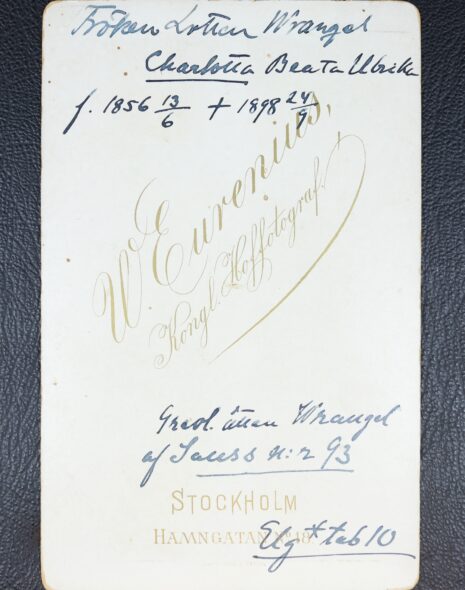 Fröken Lotten Wrangel
Charlotta Beata Ulrika
f. 1856 13/6 + 1898 24/9
W. Eurenius,
Kongl. Hoffotograf.
Grevl. ätten Wrangel
af Sauss n:r 93
STOCKHOLM
HAMNGATAN No 18
Elg* tab 10